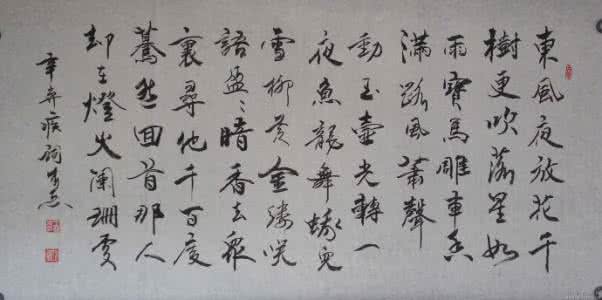 東風夜放花千
樹更吹落星如
雨寶馬雕車香
滿路風簫聲
動玉壺光轉一
夜魚龍舞蛾兒
雪柳黃金縷咲
語盈〻暗香去眾
裏尋他千百度
驀然回首那人
却在燈火闌珊處
辛弃疾詞